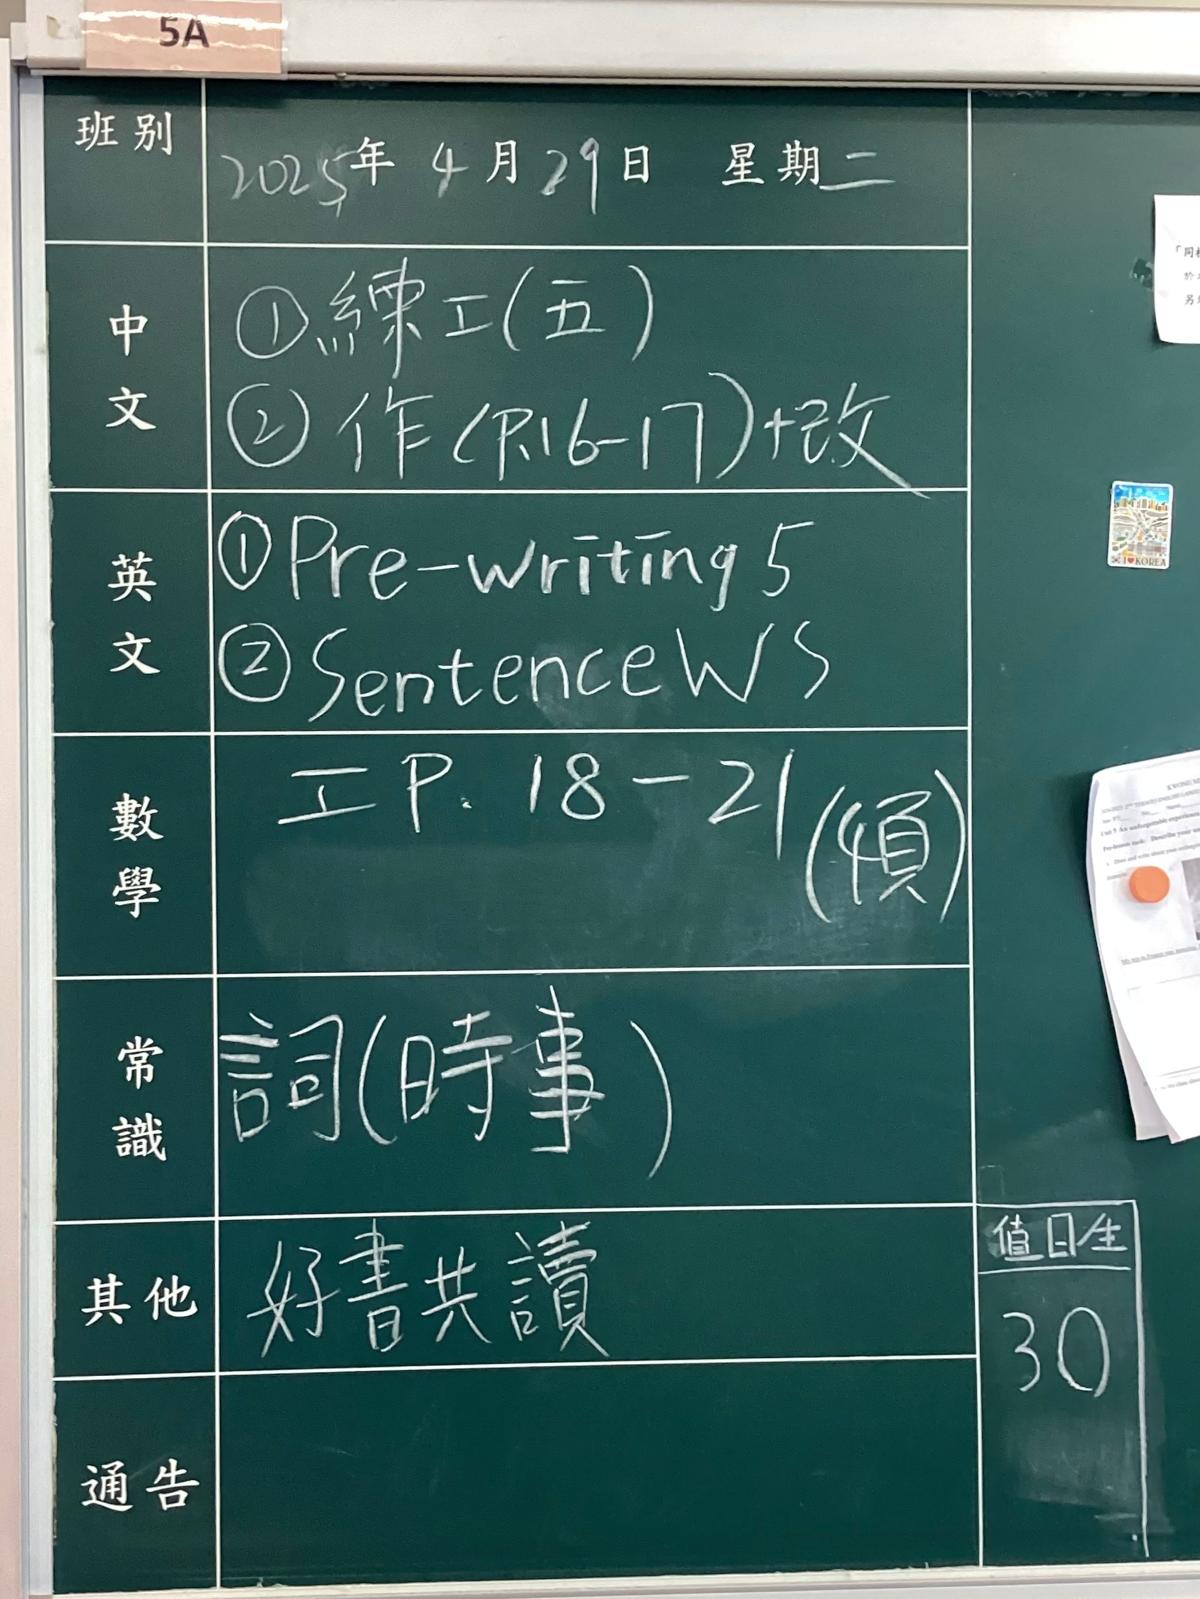 5A
班別
2025年 4月29日 星期二
中文
①練工(五)
②作(P.16-17)+改
英文
①Pre-writing 5
②Sentence WS
數學
工 P. 18-21
(4頁)
常識
詞(時事)
其他
好書共讀
值日生
30
通告
I♥KOREA
「同
於
另